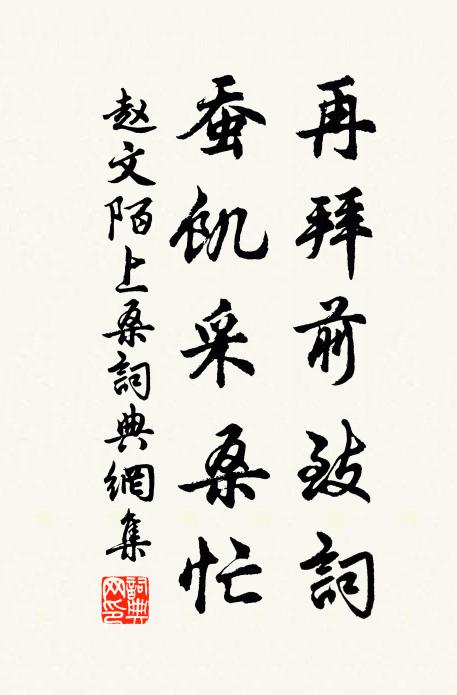 再拜前致詞
蚕飢采桑忙
赵文陌上桑詞典網集
詞典网印